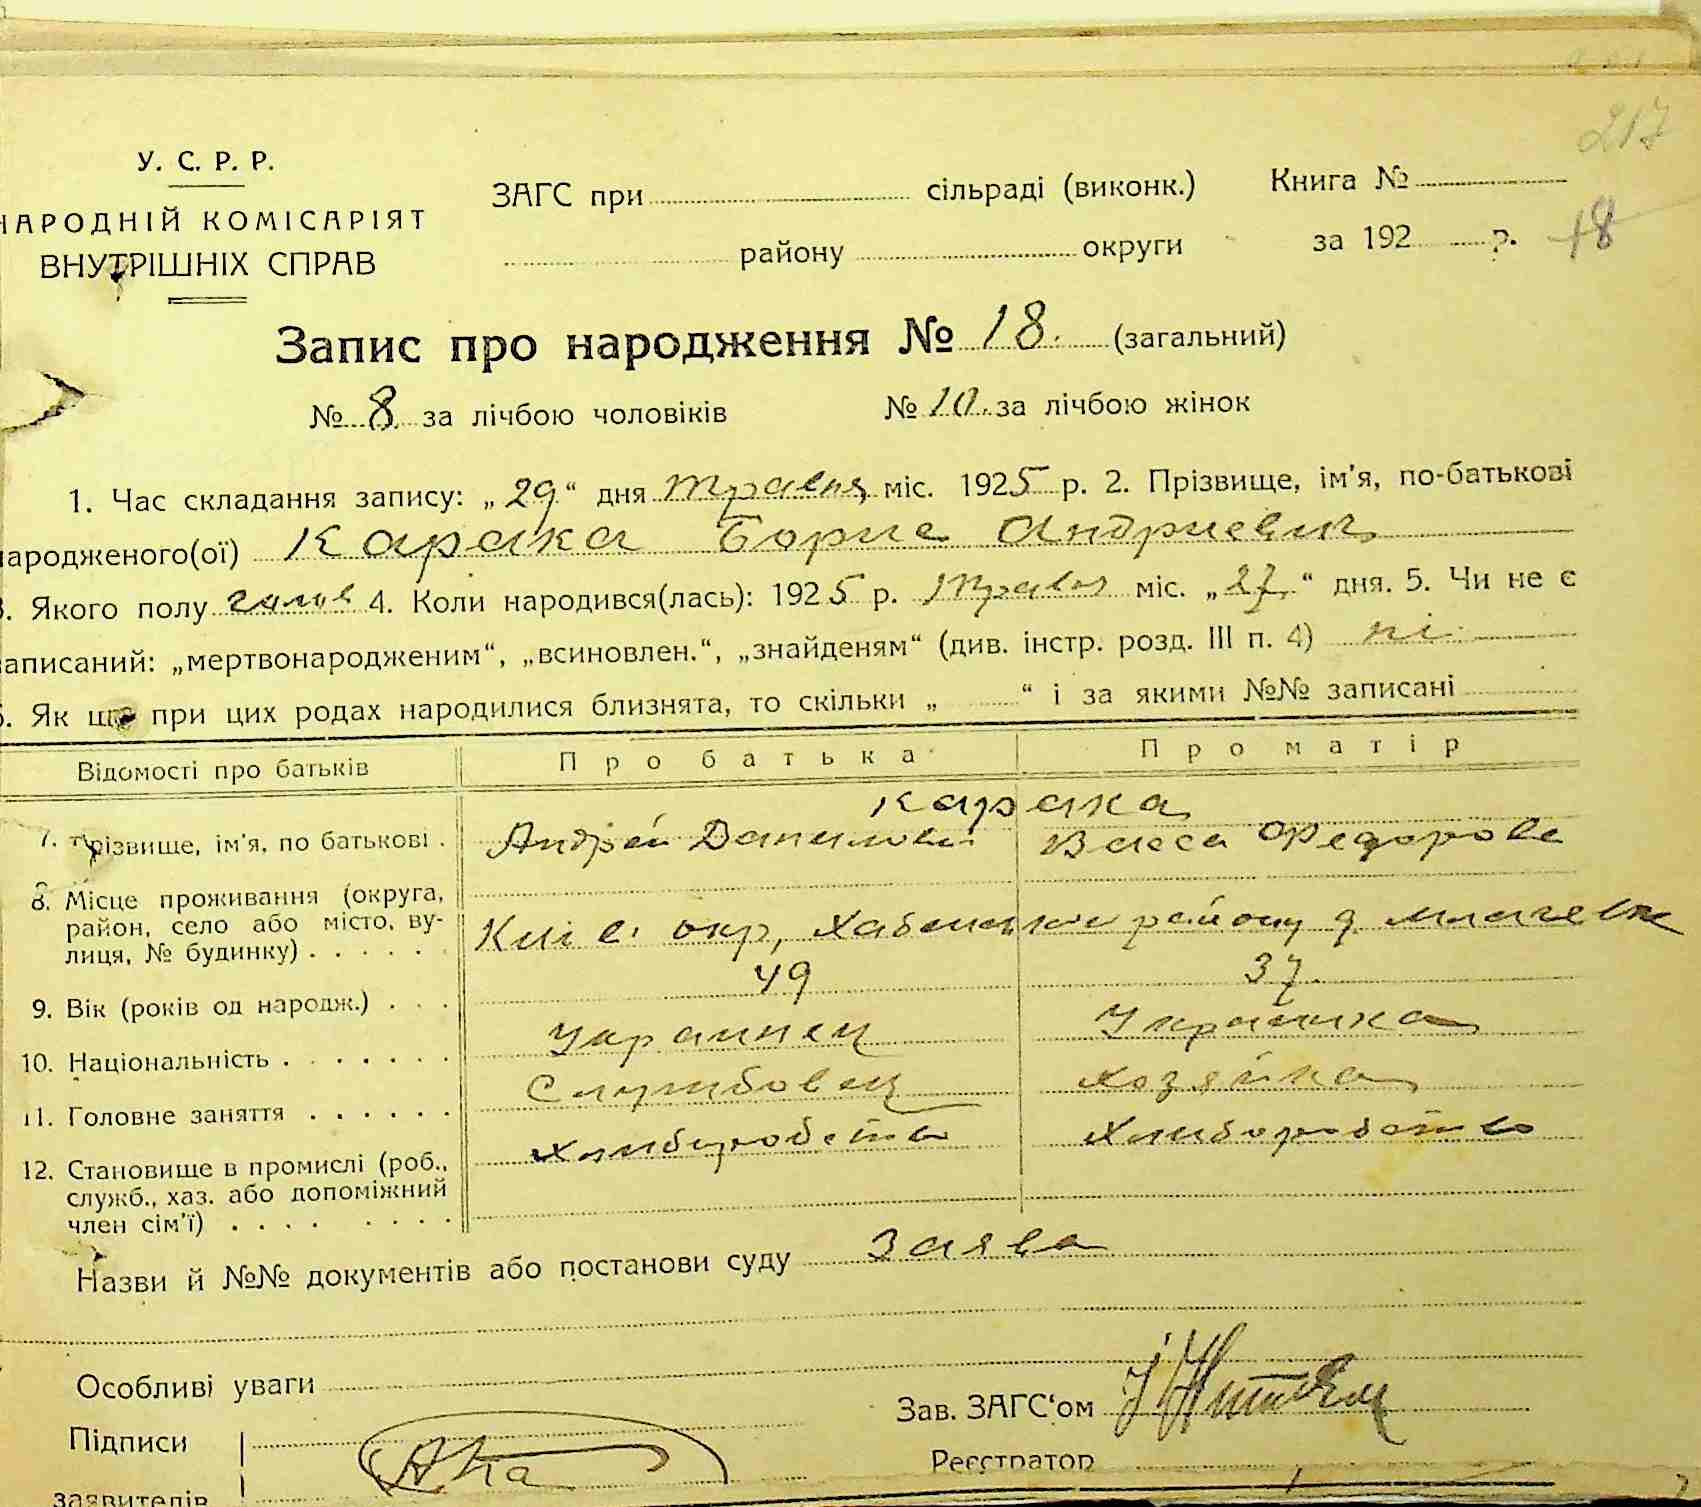 217
У. С. Р. Р.
НАРОДНІЙ КОМІСАРІЯТ
ВНУТРІШНІХ СПРАВ
ЗАГС при сільраді (виконк.) Книга №
району округи за 192 р. 18
Запис про народження № 18. (загальний)
№ 8 за лічбою чоловіків № 10. за лічбою жінок
1. Час складання запису: „29“ дня травня міс. 1925 р. 2. Прізвище, ім'я, по-батькові
народженого(ої) Карака Борис Андриевич
3. Якого полу 4. Коли народився(лась): 1925 р. Травня міс. „27“ дня. 5. Чи не є
записаний: „мертвонародженим“, „всиновлен.“, „знайденям“ (див. інстр. розд. III п. 4) ні
6. Як що при цих родах народилися близнята, то скільки „ “ і за якими №№ записані
Відомості про батьків Про батька Про матір
Карака
7. Прізвище, ім'я, по батькові . Андрей Данилович Васса Федорова
8. Місце проживання (округа,
район, село або місто, ву-
лиця, № будинку) . . . . . Київ. окр, району
9. Вік (років од народж.) . . . 49 37
10. Національність . . . . . . . Украинец Українка
11. Головне заняття . . . . . . Службовец хозяйка
12. Становище в промислі (роб., Хлиборобство Хлиборобство
служб., хаз. або допоміжний
член сім'ї) . . . . . . . .
Назви й №№ документів або постанови суду Заява
Особливі уваги
Зав. ЗАГС‘ом
Підписи
Реєстратор
заявителів